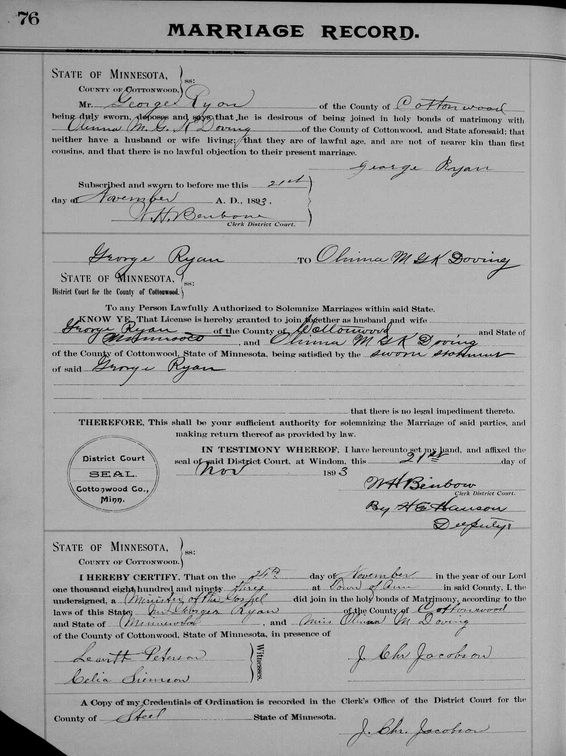 76
MARRIAGE RECORD.
STATE OF MINNESOTA,
COUNTY OF COTTONWOOD, ss:
Mr. George Ryan of the County of Cottonwood
being duly sworn, deposes and says that he is desirous of being joined in holy bonds of matrimony with
M. G. K Doving of the County of Cottonwood, and State aforesaid; that
neither have a husband or wife living; that they are of lawful age, and are not of nearer kin than first
cousins, and that there is no lawful objection to their present marriage.
George Ryan
Subscribed and sworn to before me this 21st
day of November A. D., 1893.
W. H. Benbow
Clerk District Court.
George Ryan TO Olinna M G K Doving
STATE OF MINNESOTA,
District Court for the County of Cottonwood. ss:
To any Person Lawfully Authorized to Solemnize Marriages within said State.
KNOW YE, That License is hereby granted to join together as husband and wife
George Ryan of the County of Cottonwood and State of
Minnesota, and Olinna M G K Doving
of the County of Cottonwood, State of Minnesota, being satisfied by the sworn statement
of said George Ryan
that there is no legal impediment thereto.
THEREFORE, This shall be your sufficient authority for solemnizing the Marriage of said parties, and
making return thereof as provided by law.
IN TESTIMONY WHEREOF, I have hereunto set my hand, and affixed the
seal of said District Court, at Windom, this 21st day of
Nov 1893
District Court
SEAL.
Cottonwood Co.,
Minn.
W H Benbow
Clerk District Court.
By H E Hanson
Deputy.
STATE OF MINNESOTA,
COUNTY OF COTTONWOOD. ss:
I HEREBY CERTIFY, That on the 24th day of November in the year of our Lord
one thousand eight hundred and ninety three at Town of Ann in said County, I, the
undersigned, a Minister of the Gospel did join in the holy bonds of Matrimony, according to the
laws of this State, Mr George Ryan of the County of Cottonwood
and State of Minnesota, and Miss Olinna M. Doving
of the County of Cottonwood, State of Minnesota, in presence of
Peterson
Celia Siemson
Witnesses.
J. Chr. Jacobson
A Copy of my Credentials of Ordination is recorded in the Clerk's Office of the District Court for the
County of Steel State of Minnesota.
J. Chr. Jacobson